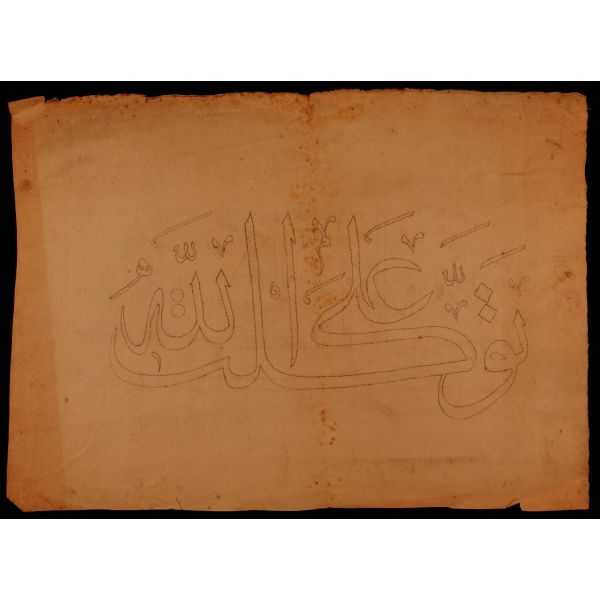 توكلت على الله